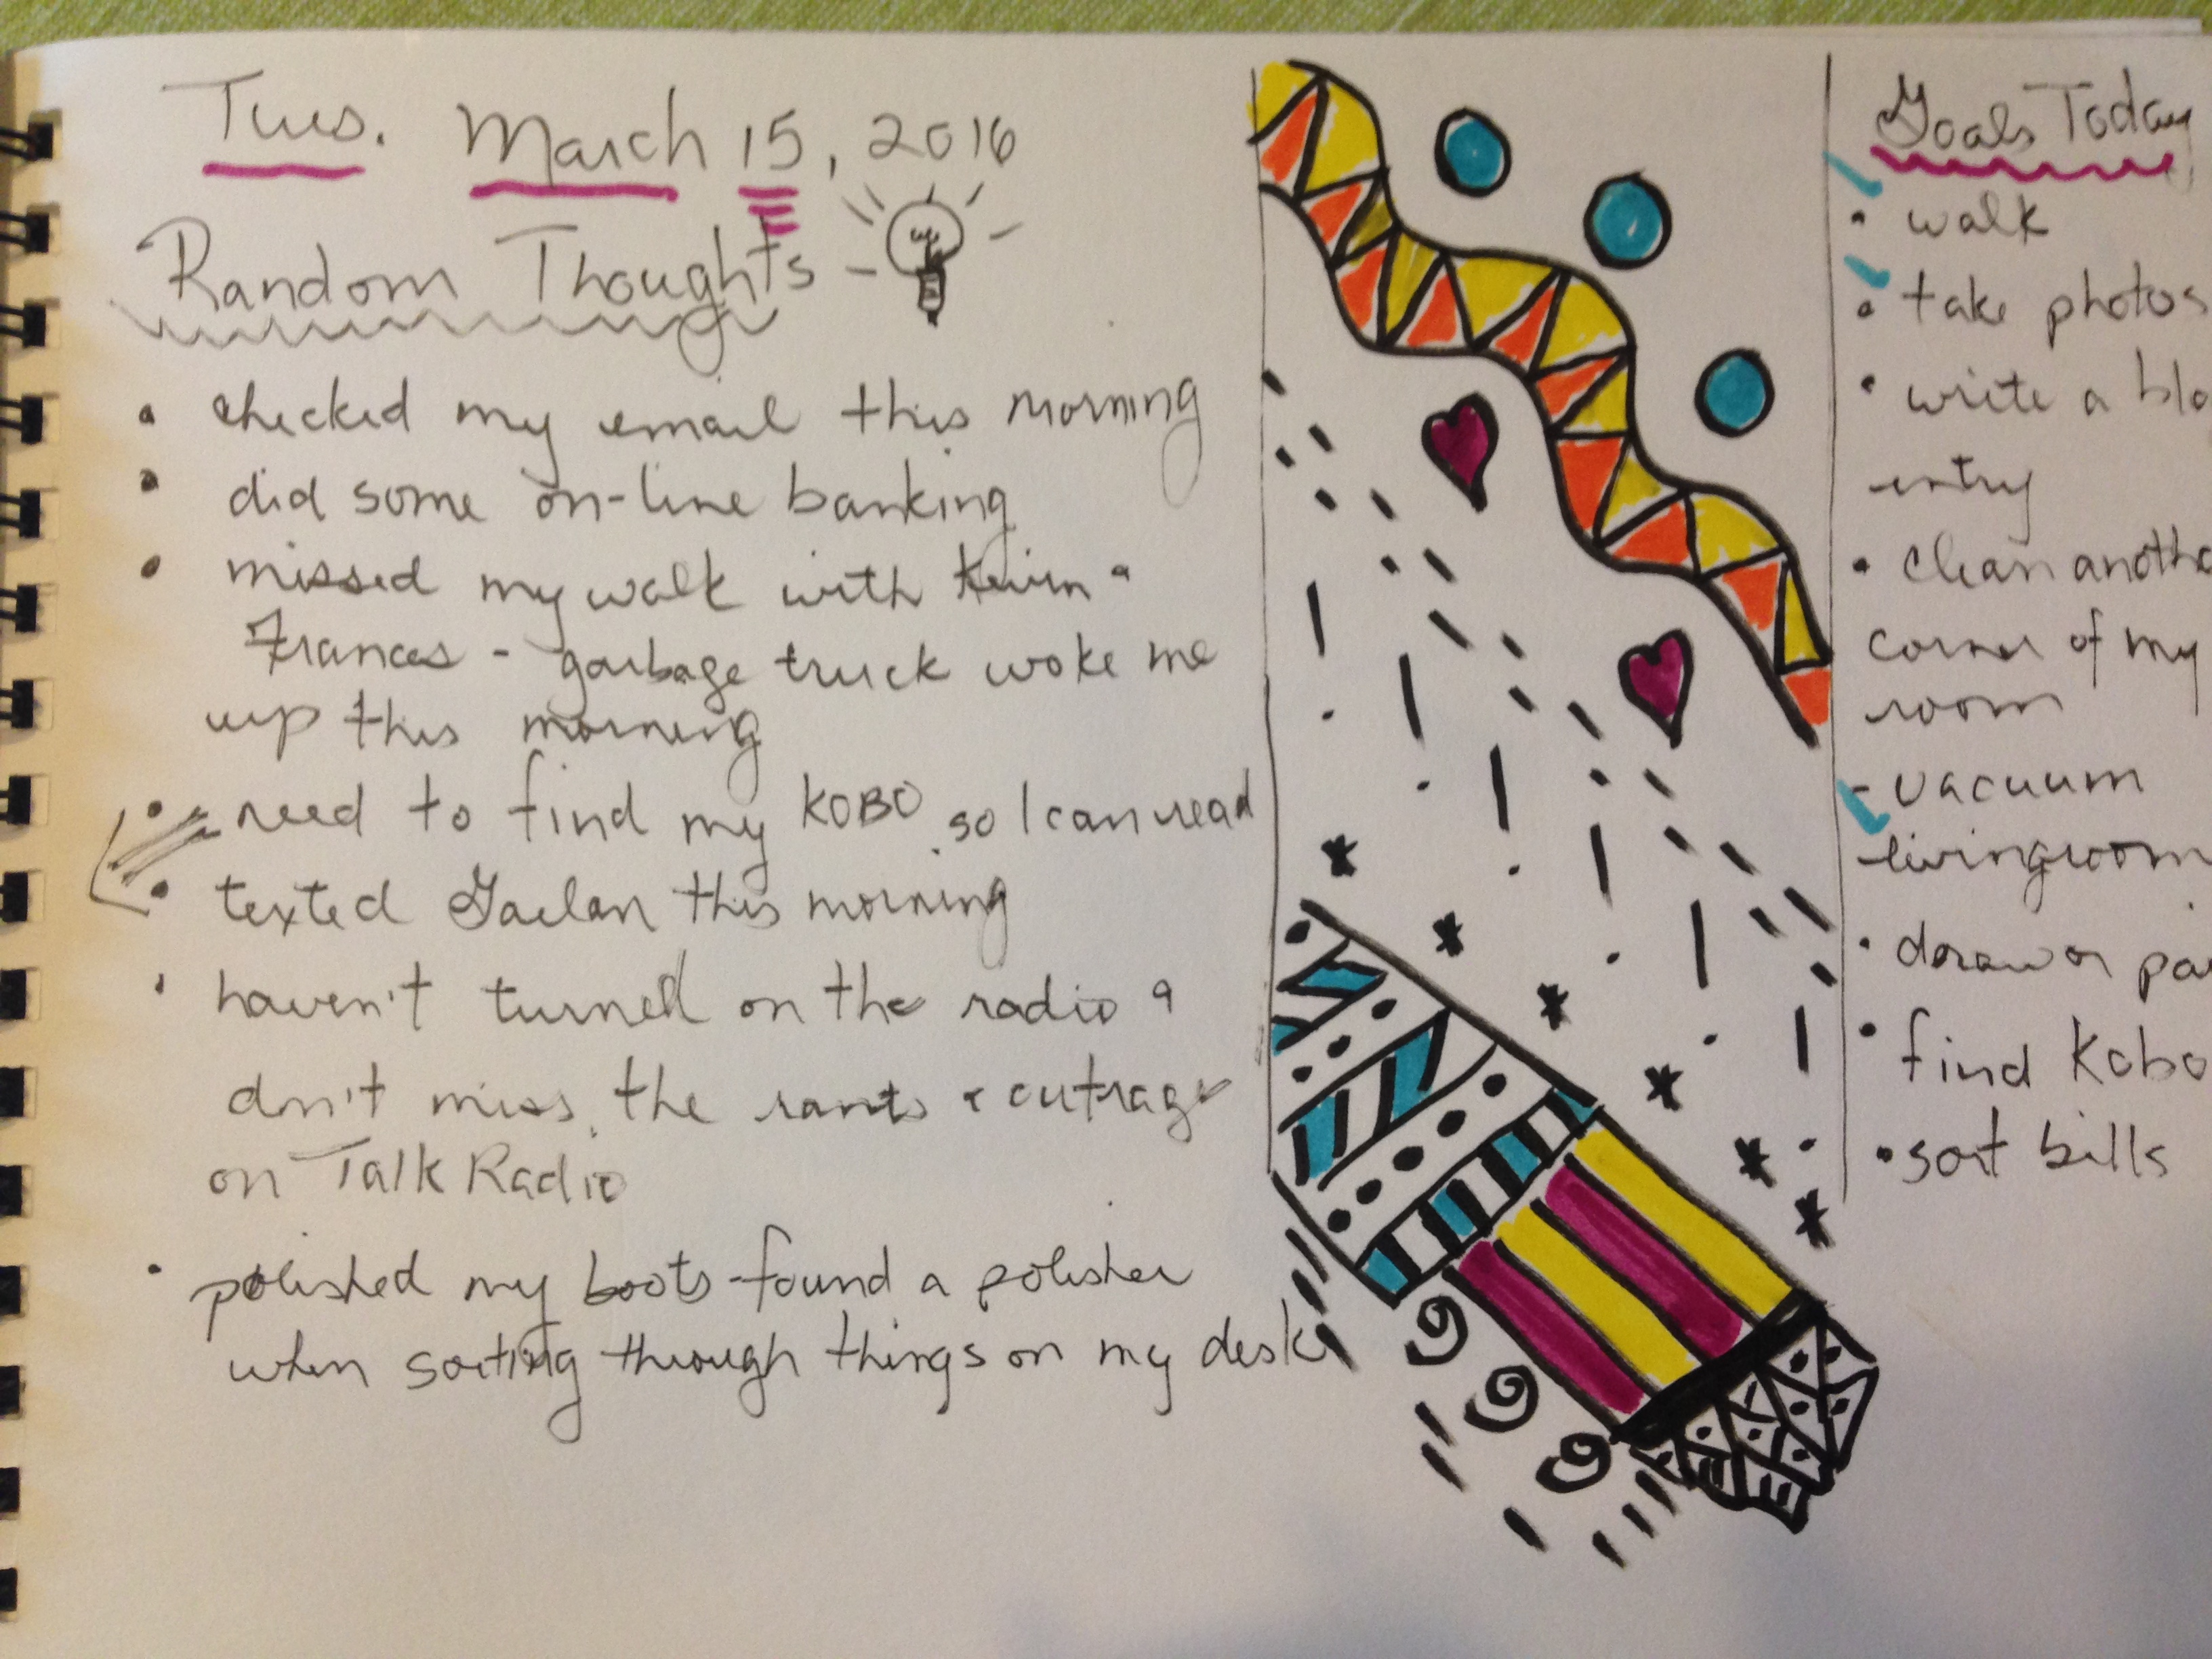 Tues. March 15, 2016
Random Thoughts
• checked my email this morning
• did some on-line banking
• missed my walk with Kevin &
Frances - garbage truck woke me
up this morning
• need to find my KOBO so I can read
• texted Gaelan this morning
• haven't turned on the radio &
don't miss the rants & outrage
on Talk Radio
• polished my boots - found a polisher
when sorting through things on my desk
Goals Today
• walk
• take photos
• write a blo
entry
• clean anothe
corner of my
room
- vacuum
livingroom
• draw or pai
• find Kobo
• sort bills